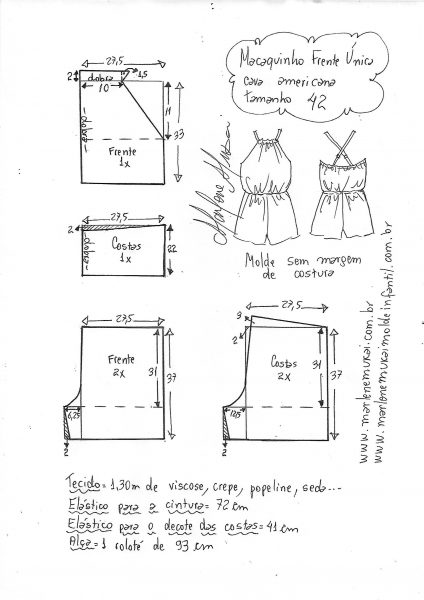 Macaquinho Frente Única
cava americana
tamanho 42
27,5
2
dobra
1,5
10
11
33
dobra
Frente
1x
Marlene Mukai
27,5
2
dobra
Costas
1x
22
Molde sem margem
de costura
27,5
Frente
2x
31
37
6,25
2
27,5
3
2
Costas
2x
31
37
12,5
2
www.marlenemukai.com.br
www.marlenemukaimoldeinfantil.com.br
Tecido = 1,30m de viscose, crepe, popeline, seda...
Elástico para a cintura = 72 cm
Elástico para o decote das costas = 41 cm
Alça = 1 rolotê de 93 cm